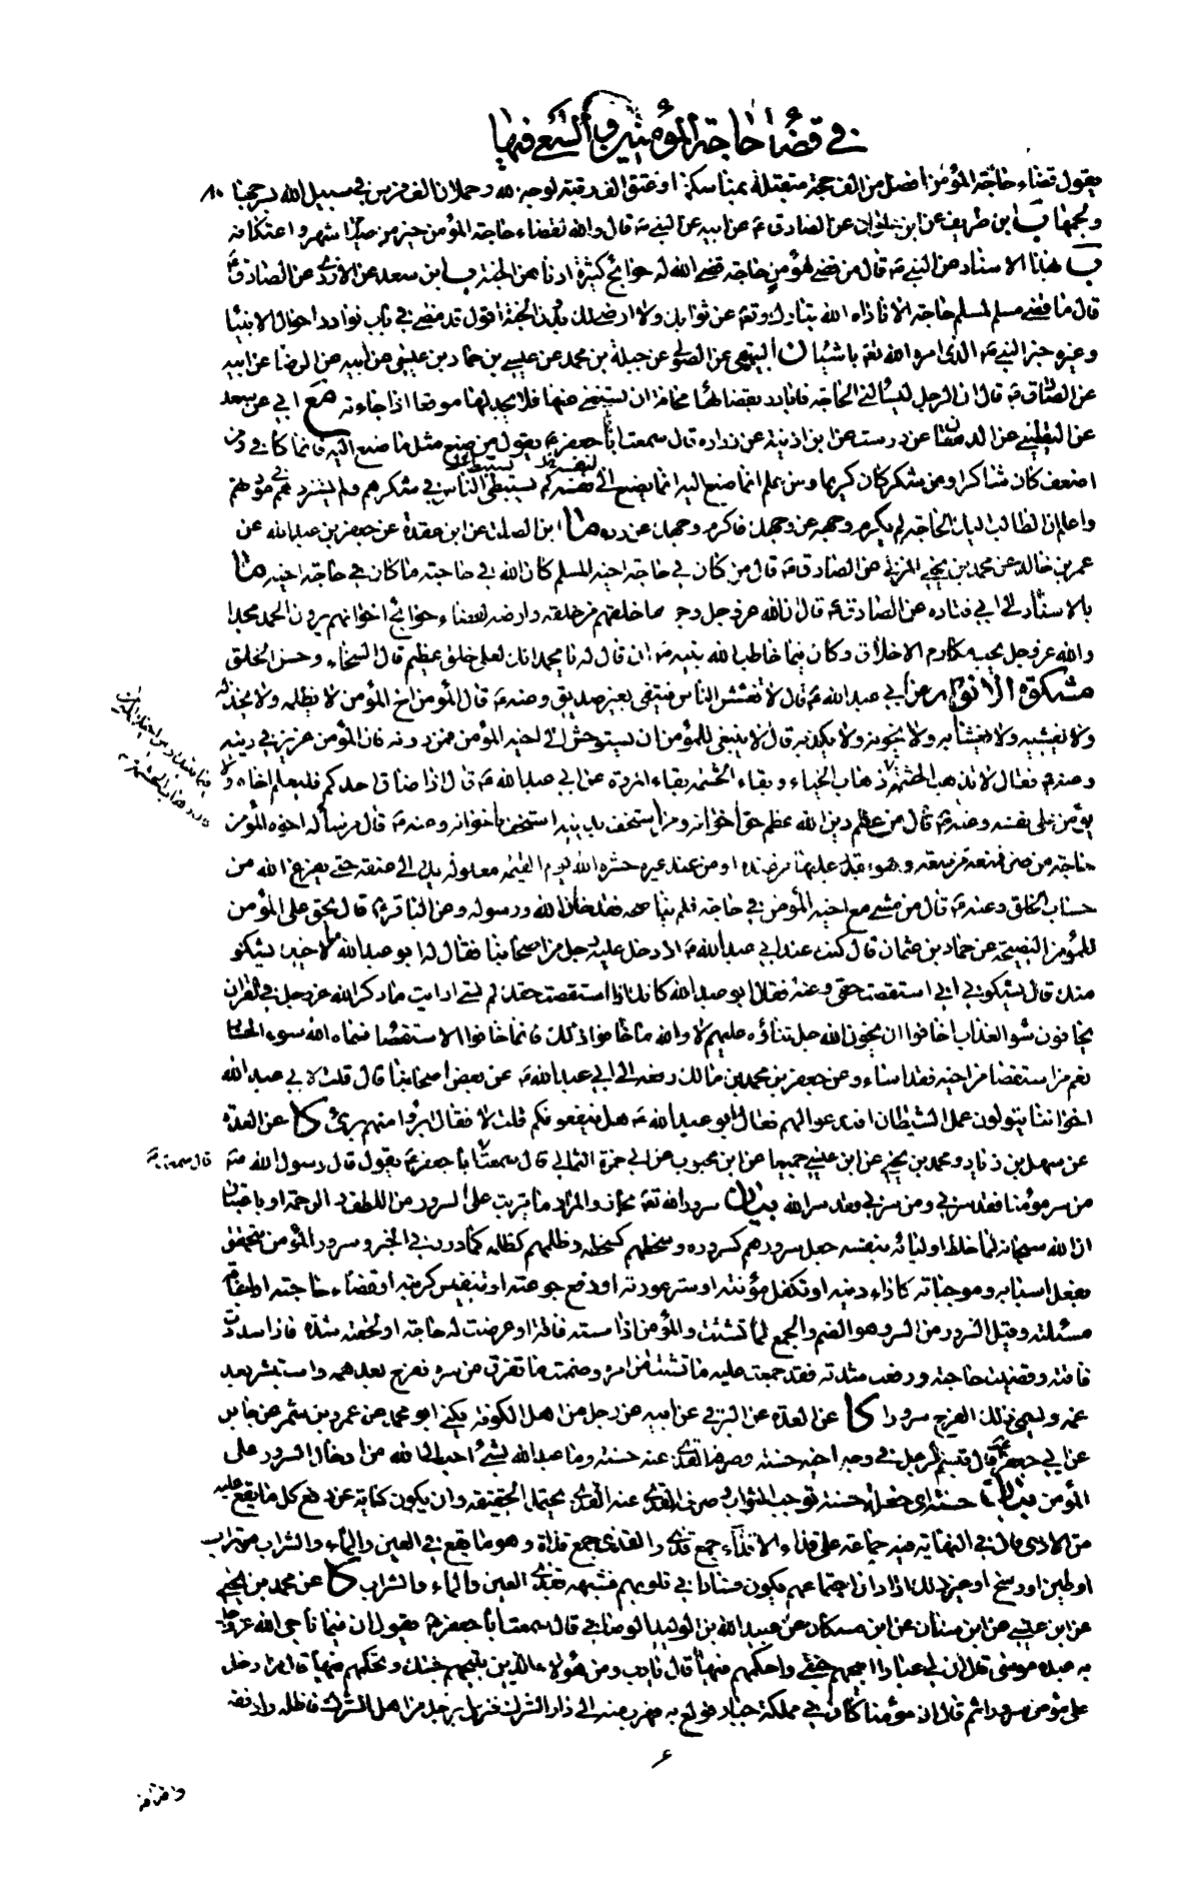 في قضاء حاجة المؤمنين والسعي فيها
يقول قضاء حاجة المؤمن افضل من الف حجة متقبلة بمناسكها وعتق الف رقبة لوجه الله وحملان الف فرس في سبيل الله بسرجها ٨٠
ولجمها ب ابن طريف عن ابن علوان عن الصادق ع عن ابيه عن النبي ص قال والله لقضاء حاجة المؤمن خير من صيام شهر واعتكافه
ب بهذا الاسناد عن النبي ص قال من قضى لمؤمن حاجة قضى الله له حوائج كثيرة ادناهن الجنة ب ابن سعد عن الازدي عن الصادق ع
قال ما قضى مسلم لمسلم حاجة الا ناداه الله تبارك وتع عن ثوابك ولا ارضى لك بدون الجنة اقول قد مضى في باب نوادر احوال الانبياء
وغيره خبر النبي ص الذي امره الله تع باشياء ن البيهقي عن الصولي عن جبلة بن محمد عن عيسى بن حماد بن عيسى عن ابيه عن الرضا عن ابيه
عن الصادق ع قال ان الرجل ليسألني الحاجة فابادر بقضائها مخافة ان يستغني عنها فلا يجد لها موقعا اذا جاءته مع ابي عن سعد
عن اليقطيني عن الدهقان عن درست عن ابن اذينة عن زراره قال سمعت ابا جعفر ع يقول من صنع مثل ما صنع اليه فانما كافى ومن
اضعف كان شاكرا ومن شكر كان كريما ومن علم انما صنع اليه انما يصنع الى نفسه لم يستبطئ الناس في شكرهم ولم يستزدهم في مودتهم
واعلم ان الطالب اليك الحاجة لم يكرم وجهه عن وجهك فاكرم وجهك عن رده ما ابن الصلت عن ابن عقدة عن جعفر بن عبد الله عن
عمر بن خالد عن محمد بن يحيى المزني عن الصادق ع قال من كان في حاجة اخيه المسلم كان الله في حاجته ما كان في حاجة اخيه ما
بالاسناد الى ابي قتاده عن الصادق ع قال ان لله عز وجل وجوها خلقهم من خلقه وارضه لقضاء حوائج اخوانهم يرون الحمد مجدا
والله عز وجل يحب مكارم الاخلاق وكان فيما خاطب الله نبيه ص ان قال له يا محمد انك لعلى خلق عظيم قال السخاء وحسن الخلق
مشكوة الانوار عن ابي عبد الله ع قال لا تفتش الناس فتبقى بغير صديق وعنه ع قال المؤمن اخ المؤمن لا يظلمه ولا يخذله
ولا يغشه ولا يغتابه ولا يخونه ولا يكذبه قال لا ينبغي للمؤمن ان يستوحش الى اخيه المؤمن فمن دونه فان المؤمن عزيز في دينه
وعنه ع فقال لا تذهب الحشمة ذهاب الحياء وبقاء الحشمة بقاء المودة عن ابي عبد الله ع قال اذا ضاق احدكم فليعلم اخاه ولا
يعين على نفسه وعنه ع قال من عظم دين الله عظم حق اخوانه ومن استخف بدينه استخف باخوانه وعنه ع قال من سأله اخوه المؤمن
حاجة من ضر فمنعه من سعة وهو يقدر عليها من عنده او من عند غيره حشره الله يوم القيمة مغلولة يده الى عنقه حتى يفرغ الله من
حساب الخلق وعنه ع قال من مشى مع اخيه المؤمن في حاجة فلم يناصحه فقد خان الله ورسوله وعن الباقر ع قال يحق على المؤمن
للمؤمن النصيحة عن حماد بن عثمان قال كنت عند ابي عبد الله ع اذ دخل عليه رجل من اصحابنا فقال له ابو عبد الله ما لاخيك يشكو
منك قال يشكوني اني استقصيت حقي منه فقال ابو عبد الله كانك اذا استقصيت حقك لم تسئ ارايت ما ذكر الله عز وجل في القرآن
يخافون سوء العذاب اخافوا ان يجور الله جل ثناؤه عليهم لا والله ما خافوا ذلك فانما خافوا الاستقصاء فسماه الله سوء الحساب
نعم من استقصى من اخيه فقد اساء وعن جعفر بن محمد بن مالك رفعه الى ابي عبد الله ع عن بعض اصحابنا قال قلت لابي عبد الله
اخواننا يتولون عمل الشيطان افندعو لهم فقال ابو عبد الله ع هل ينفعونكم قلت لا فقال ابرؤا منهم برئ كا عن العدة
عن سهل بن زياد ومحمد بن يحيى عن ابن عيسى جميعا عن ابن محبوب عن ابي حمزة الثمالي قال سمعت ابا جعفر ع يقول قال رسول الله ص
من سر مؤمنا فقد سرني ومن سرني فقد سر الله بيان سرور الله تع مجاز والمراد ما يترتب على السرور من اللطف والرحمة او باعتبار
ان الله سبحانه لما خلط اولياءه بنفسه جعل سرورهم كسروره وسخطهم كسخطه وظلمهم كظلمه كما ورد في الخبر وسرور المؤمن يتحقق
بفعل اسبابه وموجباته كاداء دينه او تكفل مؤنته او ستر عورته او دفع جوعته او تنفيس كربته او قضاء حاجته او اجابة
مسئلته وقيل السرور من السر وهو الضم والجمع لما تشتت والمؤمن اذا مسته فاقة او عرضت له حاجة او لحقته شدة فاذا سددت
فاقته وقضيت حاجته ورفعت شدته فقد جمعت عليه ما تشتت من امره وضممت ما تفرق من سره ففرح بعد همه واستبشر بعد
غمه ويسمى ذلك الفرح سرورا كا عن العدة عن البرقي عن ابيه عن رجل من اهل الكوفة يكنى ابو محمد عن عمرو بن شمر عن جابر
عن ابي جعفر ع قال تبسم الرجل في وجه اخيه حسنة وصرف القذى عنه حسنة وما عبد الله بشئ احب الى الله من ادخال السرور على
المؤمن بيان حسنة اى خصلة حسنة توجب الثواب وصرف القذى عنه القذى يحتمل الحقيقة وان يكون كناية عن دفع كل ما يقع عليه
من الاذى قال في النهاية فيه جماعة على اقذاء الاقذاء جمع قذى والقذى جمع قذاة وهو ما يقع في العين والماء والشراب من تراب
او طين او وسخ او غير ذلك اراد ان اجتماعهم يكون فسادا في قلوبهم فشبهه بقذى العين والماء والشراب كا عن محمد بن يحيى
عن ابن عيسى عن ابن سنان عن ابن مسكان عن عبيد الله بن الوليد الوصافي قال سمعت ابا جعفر ع يقول ان فيما ناجى الله عز وجل
به عبده موسى قال ان لي عبادا ابيحهم جنتي واحكمهم فيها قال يا رب ومن هؤلاء الذين تبيحهم جنتك وتحكمهم فيها قال من ادخل
على مؤمن سرورا ثم قال ان مؤمنا كان في مملكة جبار فولع به فهرب منه الى دار الشرك فنزل برجل من اهل الشرك فاظله وارفقه